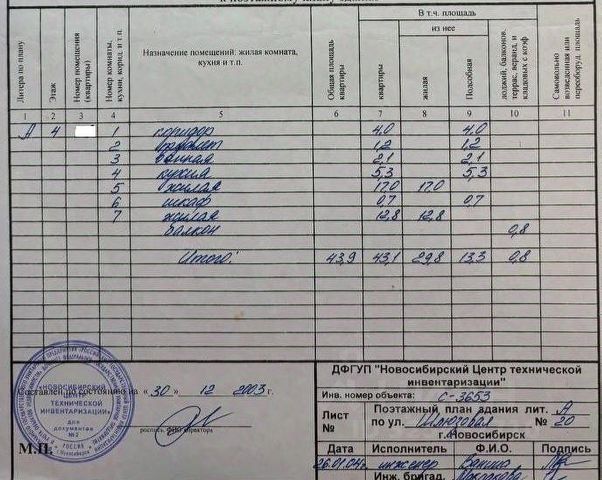 к поэтажному плану здания
Литера по плану
Этаж
Номер помещения (квартиры)
Номер комнаты, кухни, корид. и т.п.
Назначение помещений: жилая комната, кухня и т.п.
Общая площадь квартиры
В т.ч. площадь
из нее
квартиры
жилая
Подсобная
лоджий, балконов, террас, веранд, и кладовых с коэф
Самовольно возведенная или переоборуд. площадь
1 2 3 4 5 6 7 8 9 10 11
А 4 1 коридор 4,0 4,0
2 туалет 1,2 1,2
3 ванная 2,1 2,1
4 кухня 5,3 5,3
5 жилая 17,0 17,0
6 шкаф 0,7 0,7
7 жилая 12,8 12,8
балкон 0,8
Итого: 43,9 43,1 29,8 13,3 0,8
Составлено по состоянию на « 30 » 12 2003 г.
«НОВОСИБИРСКИЙ ЦЕНТР ТЕХНИЧЕСКОЙ ИНВЕНТАРИЗАЦИИ»
для документов
№2
М.П.
ДФГУП "Новосибирский Центр технической инвентаризации"
Инв. номер объекта: С-3653
Лист №
Поэтажный план здания лит. А
по ул. Шлюзовая № 20
г.Новосибирск
Дата Исполнитель Ф.И.О. Подпись
26.01.04г инженер
Инж. бригад.